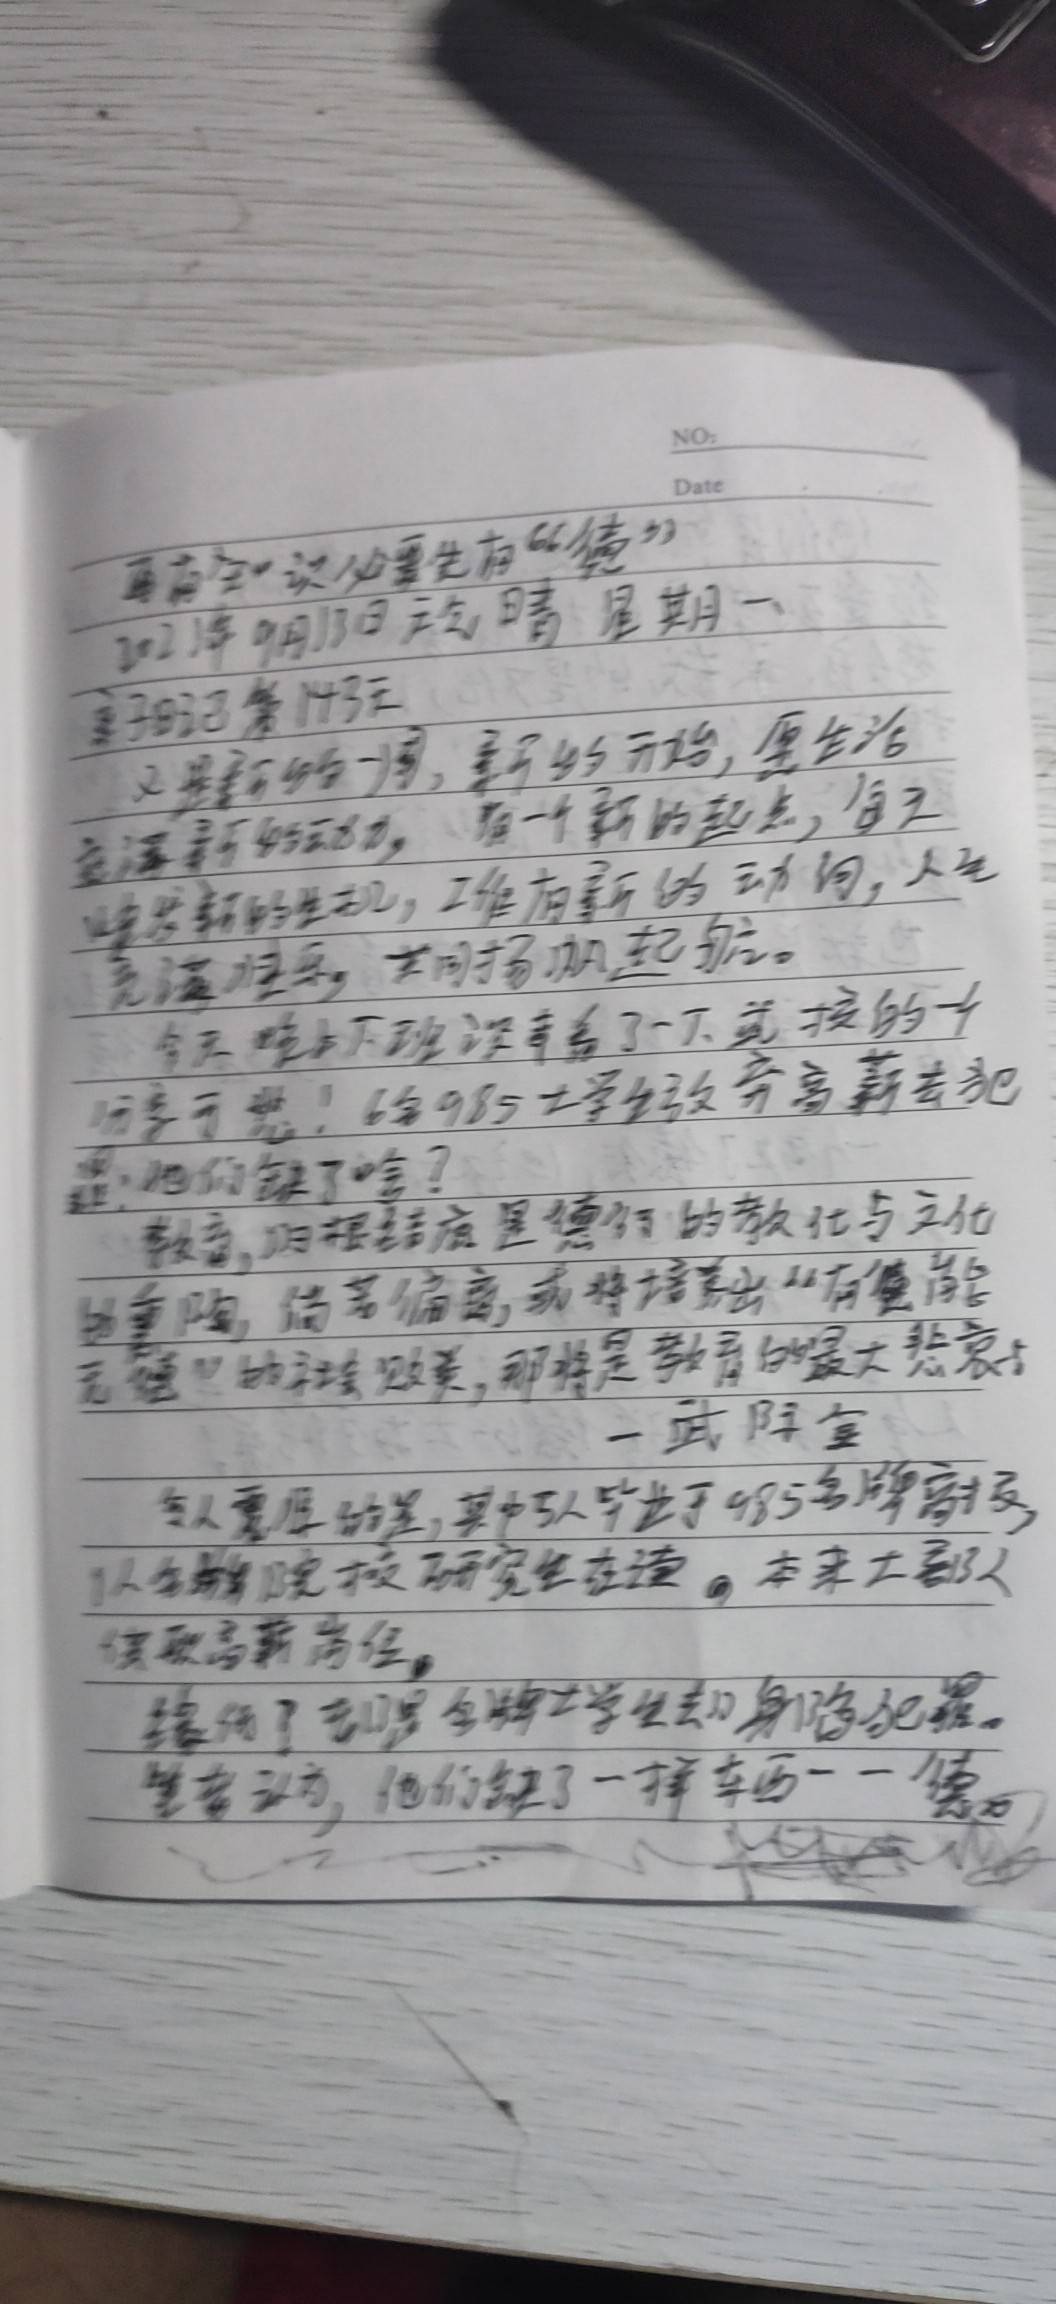 NO:
Date
再有知识必需先有“德”
2021年9月13日 天气 晴 星期一
亲子日记第143天
又是新的一周，新的开始，愿生活
充满新的动力，有一个新的起点，每天
焕发新的生机，工作有新的动向，人生
充满快乐，共同扬帆起航。
今天晚上下班 看了一下 武 校的一
6名985大学生放弃高薪去犯
罪：他们缺了啥？
教育，归根结底是德行的教化与文化
的熏陶，倘若偏离，或将培养出“有
无德”的社会败类，那将是教育的最大悲哀。
一武 金
令人震惊的是，其中5人毕业于985名牌高校，
1人 院校研究生在读。本来大部人
供职高薪岗位。
缘何 名牌大学生却身陷犯罪。
笔者认为，他们缺了一样东西一一德